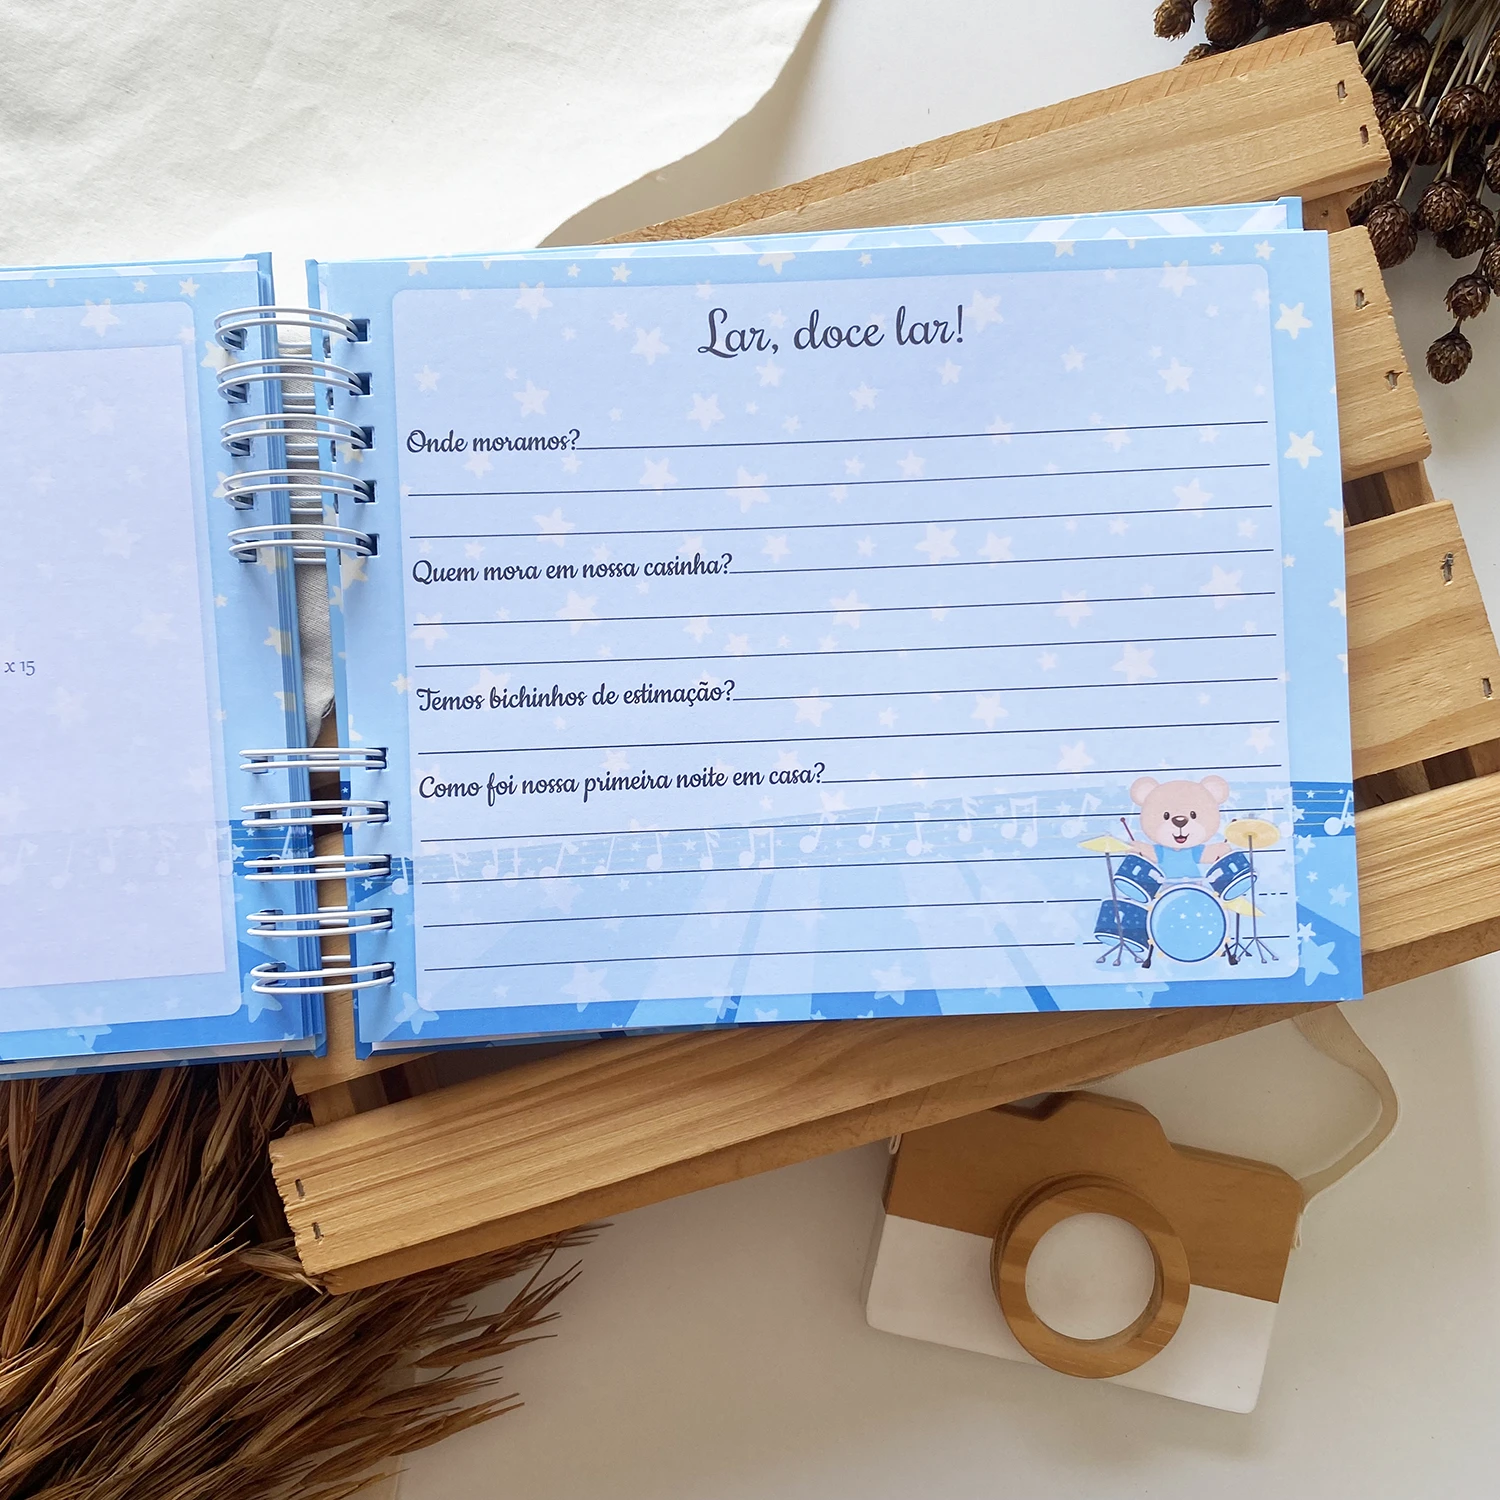 x 15
Lar, doce lar!
Onde moramos?
Quem mora em nossa casinha?
Temos bichinhos de estimação?
Como foi nossa primeira noite em casa?